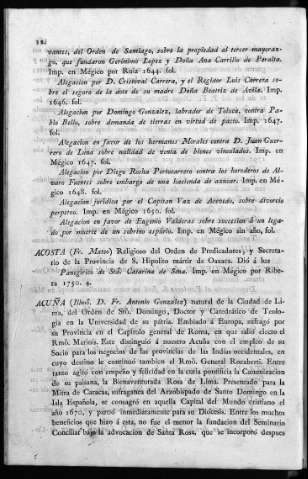 vantes, del Orden de Santiago, sobre la propiedad al tercer mayoraz-
go, que fundaron Gerónimo Lopez y Doña Ana Carrillo de Peralta.
Imp. en Mégico por Ruiz 1644. fol.
Alegacion por D. Cristóval Carrera, y el Regidor Luis Carrera so-
bre el seguro de la dote de su madre Doña Beatriz de Avila. Imp.
1646. fol.
Alegacion por Domingo Gonzalez, labrador de Toluca, contra Pa-
blo Bello, sobre demanda de tierras en virtud de pacto. Imp. 1647.
fol.
Alegacion en favor de los hermanos Morales contra D. Juan Guer-
rero de Luna sobre nulidad de venta de bienes vinculados. Imp. en
Mégico 1647. fol.
Alegacion por Diego Rocha Portocarrero contra los herederos de Al-
varo Fuerres sobre embargo de una hacienda de azucar. Imp. en Mé-
gico 1648. fol.
Alegacion jurídica por el Capitan Vaz de Acevedo, sobre divorcio
perpetuo. Imp. en Mégico 1650. fol.
Alegacion en favor de Eugenio Valderas sobre succesion á un lega-
do por muerte de un sobrino espúrio. Imp. en Mégico sin año, fol.
ACOSTA (Fr. Mateo) Religioso del Orden de Predicadores, y Secreta-
rio de la Provincia de S. Hipolito mártir de Oaxaca. Dió á luz
Panegírico de Stâ. Catarina de Sena. Imp. en Mégico por Ribe-
ra 1750. 4.
ACUÑA (Illmô. D. Fr. Antonio Gonzalez) natural de la Ciudad de Li-
ma, del Orden de Stô. Domingo, Doctor y Catedrático de Teolo-
gía en la Universidad de su pátria. Enviado á Europa, sufragó por
su Provincia en el Capítulo general de Roma, en que salió electo el
Rmô. Marinis. Este distinguió á nuestro Acuña con el empleo de su
Socio para los negocios de las provincias de las Indias occidentales, en
cuyo destino le continuó tambien el Rmô. General Rocaberti. Entre
tanto agitó con empeño y felicidad en la curia pontificia la Canonizacion
de su paisana, la Bienaventurada Rosa de Lima. Presentado para la
Mitra de Caracas, sufraganea del Arzobispado de Santo Domingo en la
Isla Española, se consagró en aquella Capital del Mundo cristiano el
año 1670, y partió inmediatamente para su Diócesis. Entre los muchos
beneficios que hizo á esta, no fue el menor la fundacion del Seminario
Conciliar bajo la advocacion de Santa Rosa, que se incorporó despues